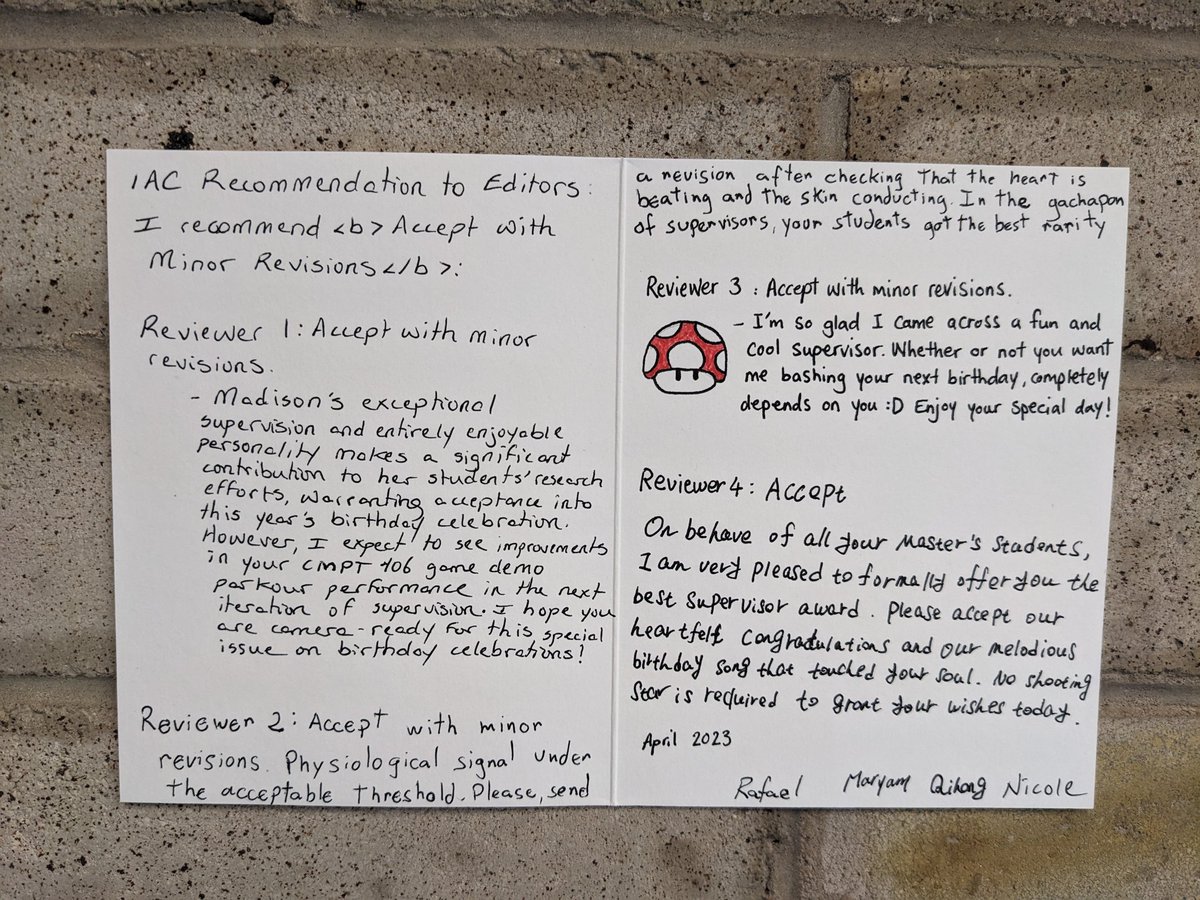 1AC Recommendation to Editors:
I recommend <b> Accept with
Minor Revisions </b>:
Reviewer 1: Accept with minor
revisions.
- Madison's exceptional
supervision and entirely enjoyable
personality makes a significant
contribution to her students' research
efforts, warranting acceptance into
this year's birthday celebration.
However, I expect to see improvements
in your CMPT 406 game demo
parkour performance in the next
iteration of supervision. I hope you
are camera-ready for this special
issue on birthday celebrations!
Reviewer 2: Accept with minor
revisions. Physiological signal under
the acceptable threshold. Please, send
a revision after checking that the heart is
beating and the skin conducting. In the gachapon
of supervisors, your students got the best rarity
Reviewer 3 : Accept with minor revisions.
- I'm so glad I came across a fun and
cool supervisor. Whether or not you want
me bashing your next birthday, completely
depends on you :D Enjoy your special day!
Reviewer 4: Accept
On behave of all your Master's Students,
I am very pleased to formally offer you the
best supervisor award. Please accept our
heartfelt Congradulations and our melodious
birthday song that touched your soul. No shooting
star is required to grant your wishes today.
April 2023
Rafael Maryam Qihang Nicole